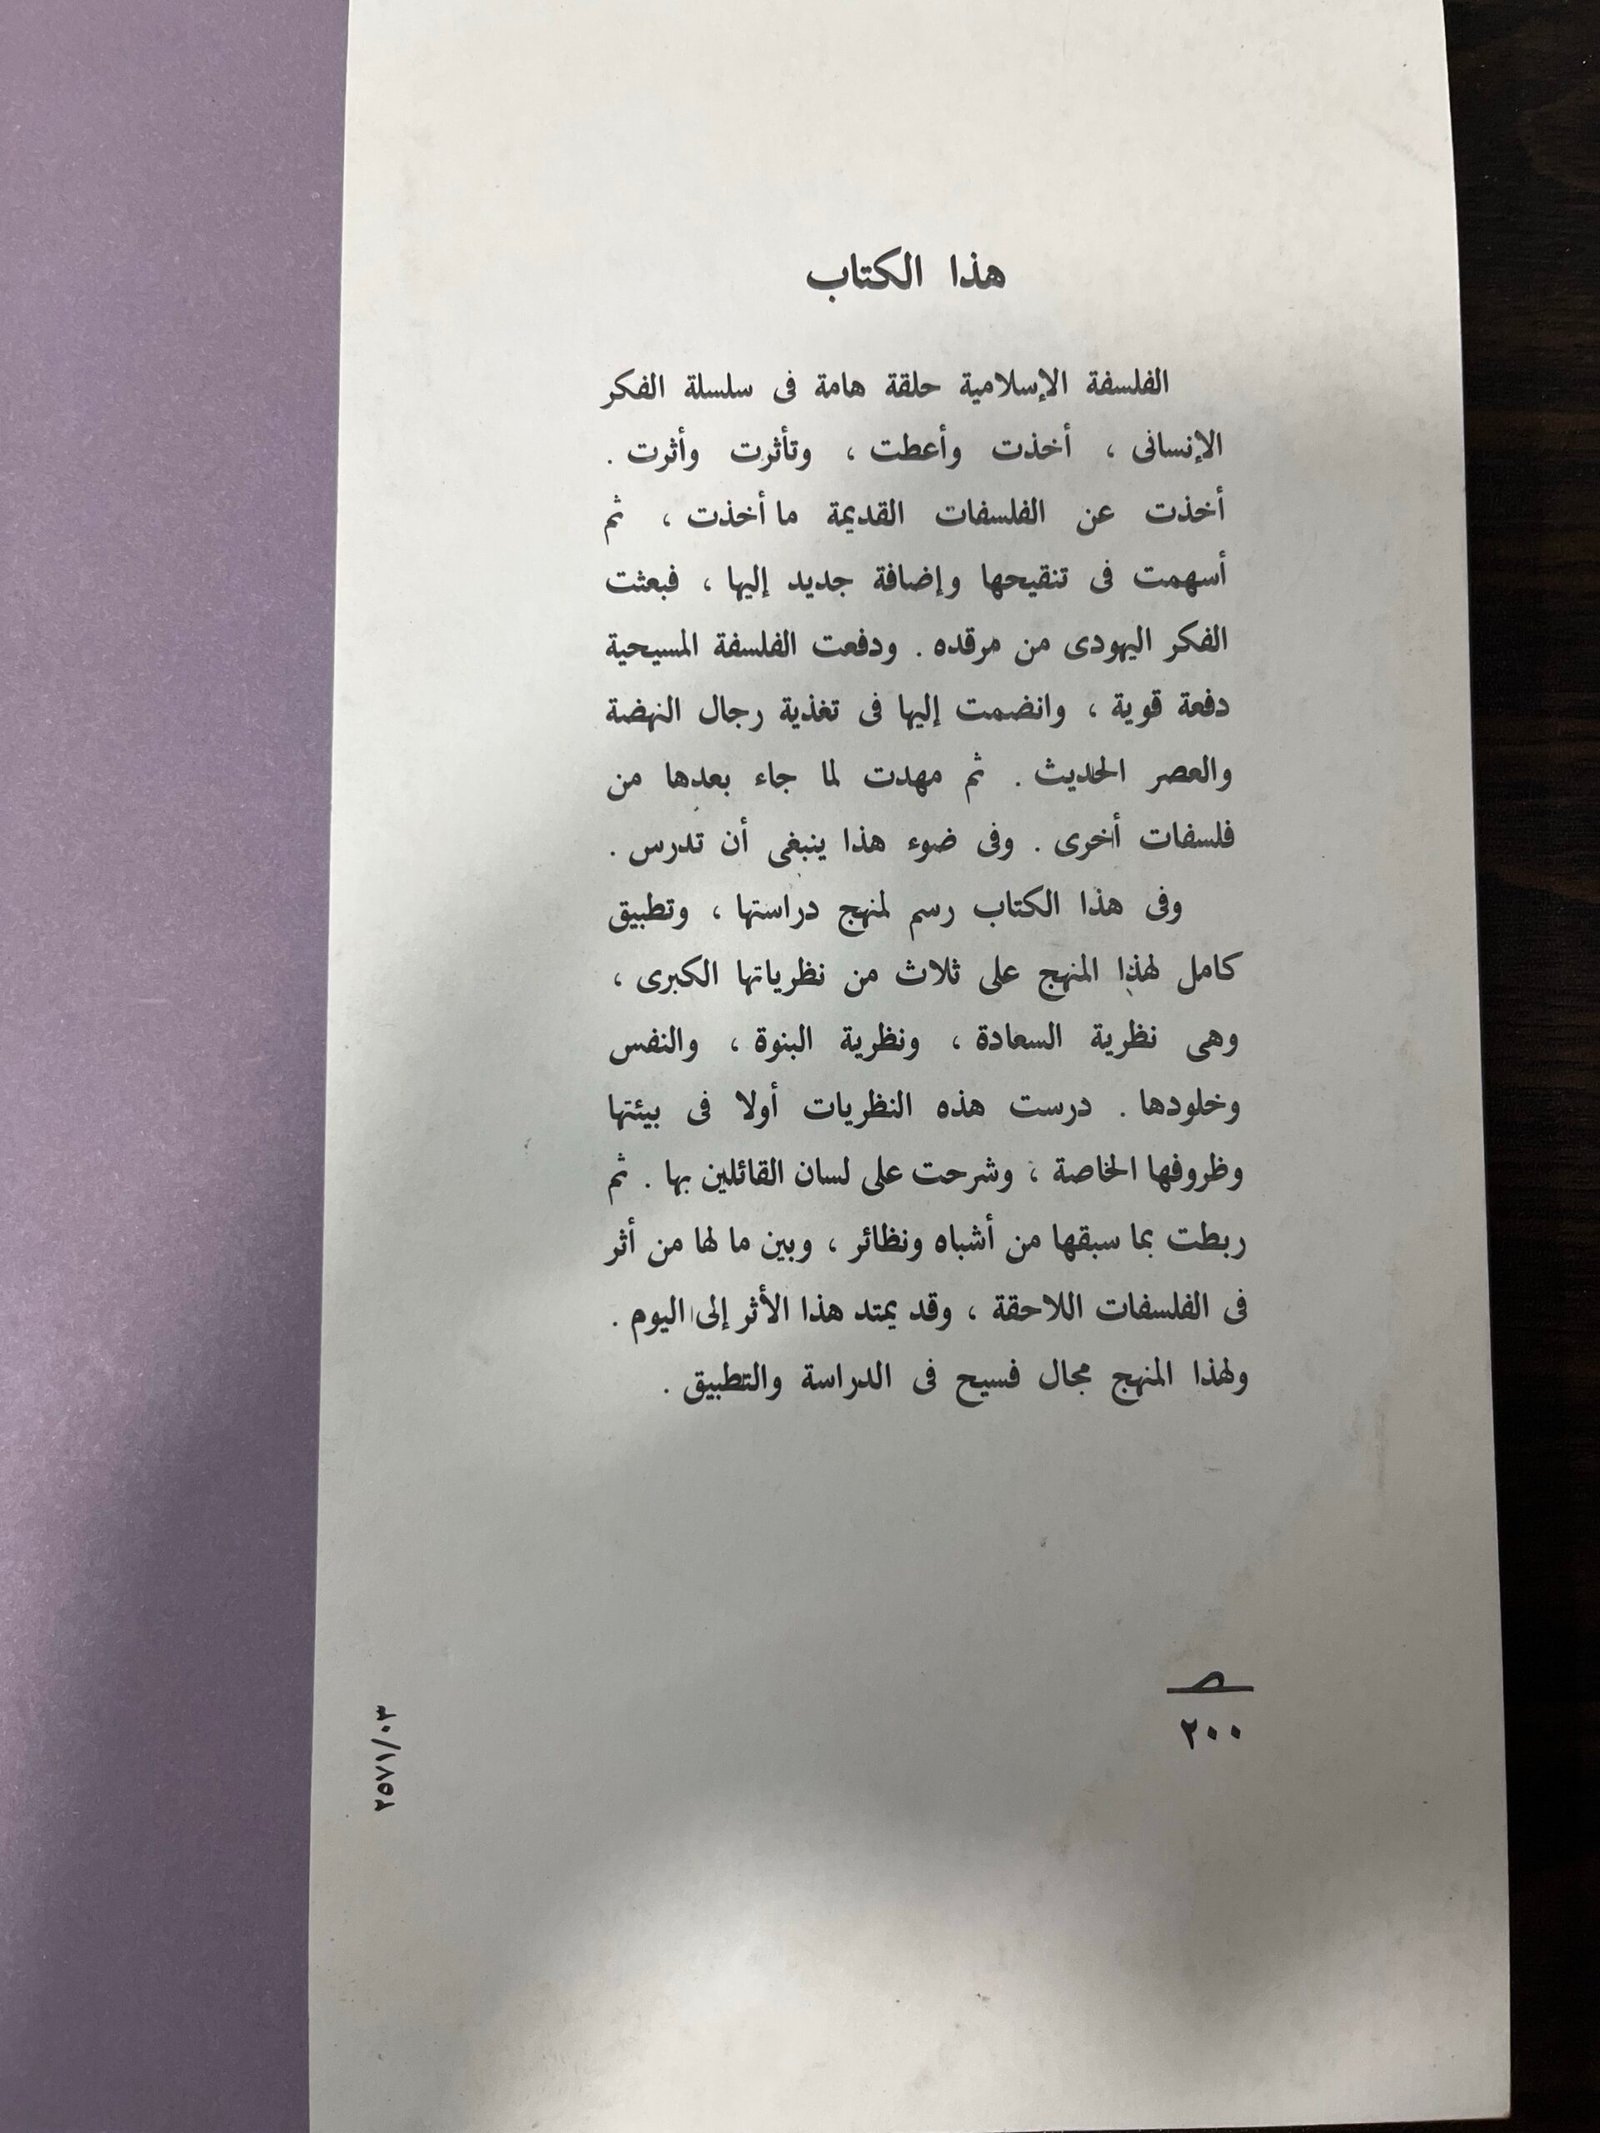 هذا الكتاب
الفلسفة الإسلامية حلقة هامة فى سلسلة الفكر
الإنسانى ، أخذت وأعطت ، وتأثرت وأثرت .
أخذت عن الفلسفات القديمة ما أخذت ، ثم
أسهمت فى تنقيحها وإضافة جديد إليها ، فبعثت
الفكر اليهودى من مرقده . ودفعت الفلسفة المسيحية
دفعة قوية ، وانضمت إليها فى تغذية رجال النهضة
والعصر الحديث . ثم مهدت لما جاء بعدها من
فلسفات أخرى . وفى ضوء هذا ينبغى أن تدرس .
وفى هذا الكتاب رسم لمنهج دراستها ، وتطبيق
كامل لهذا المنهج على ثلاث من نظرياتها الكبرى ،
وهى نظرية السعادة ، ونظرية البنوة ، والنفس
وخلودها . درست هذه النظريات أولا فى بيئتها
وظروفها الخاصة ، وشرحت على لسان القائلين بها . ثم
ربطت بما سبقها من أشباه ونظائر ، وبين ما لها من أثر
فى الفلسفات اللاحقة ، وقد يمتد هذا الأثر إلى اليوم .
ولهذا المنهج مجال فسيح فى الدراسة والتطبيق .
صـ
٢٠٠
٢٥٧١/٠٣